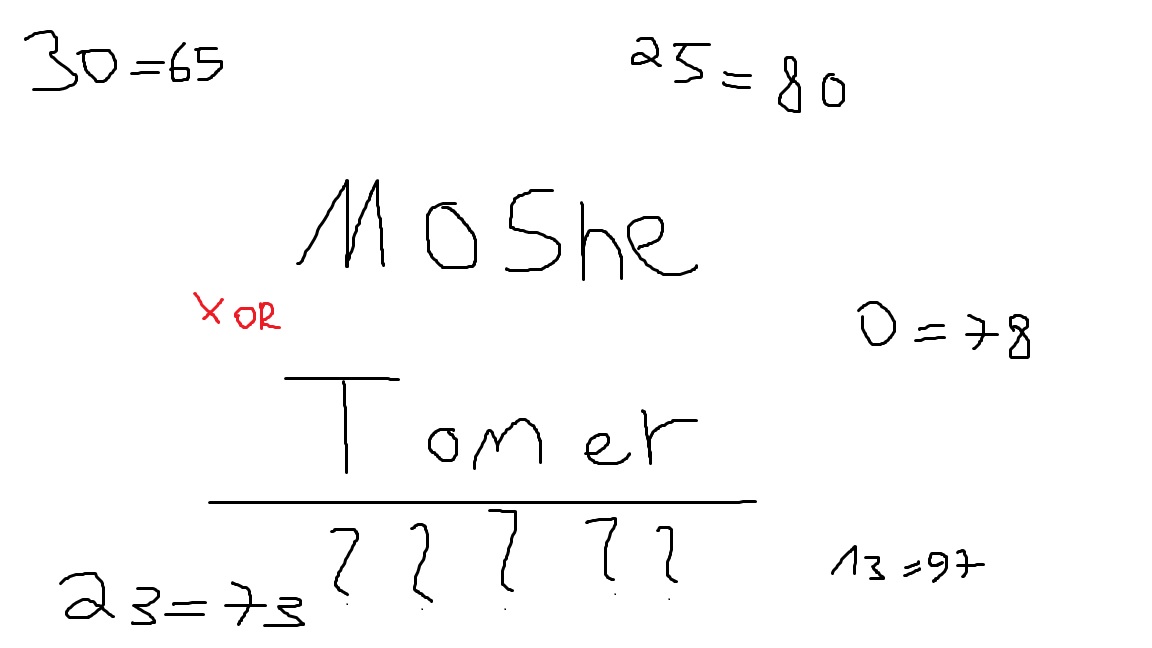 30=65
25=80
MOShe
XOR
0=78
Tomer
? ? ? ? ?
13=97
23=73